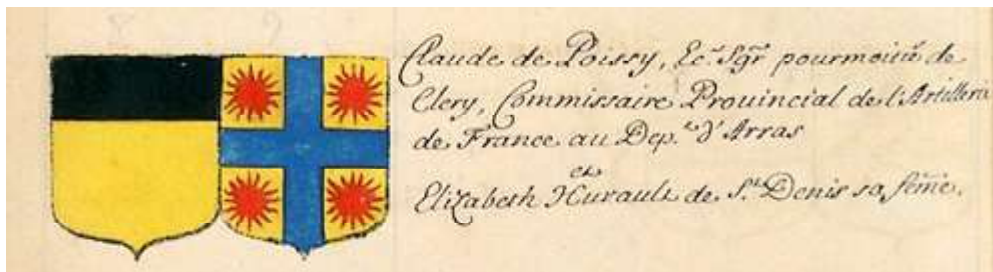 Claude de Poissy, Ec.^r Sgr pourmoitié de
Clery, Commissaire Prouincial de l'Artillerie
de France au Dep.^t d'Arras
et
Elizabeth Hurault de S.^t Denis sa femē.